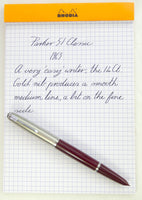 RHODIA
Parker 51 Classic
1963
A very easy writer, the 14ct.
Gold nib produces a smooth
medium line, a bit on the fine
side.